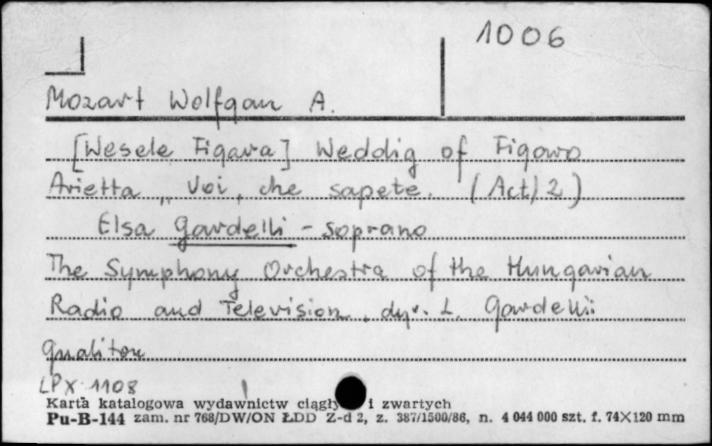 1006
Mozart Wolfgan A.
[Wesele Figara] Weddig of Figowo
Arietta „Voi, che sapete. (Act/2)
Elsa Gardelli - soprano
The Symphony Orchestra of the Hungarian
Radio and Television, dyr. L. Gardelli
Qualiton
LPX 1108
Karta katalogowa wydawnictw ciągły i zwartych
Pu-B-144 zam. nr 768/DW/ON ŁDD Z-d 2, z. 387/1500/86, n. 4 044 000 szt. f. 74×120 mm